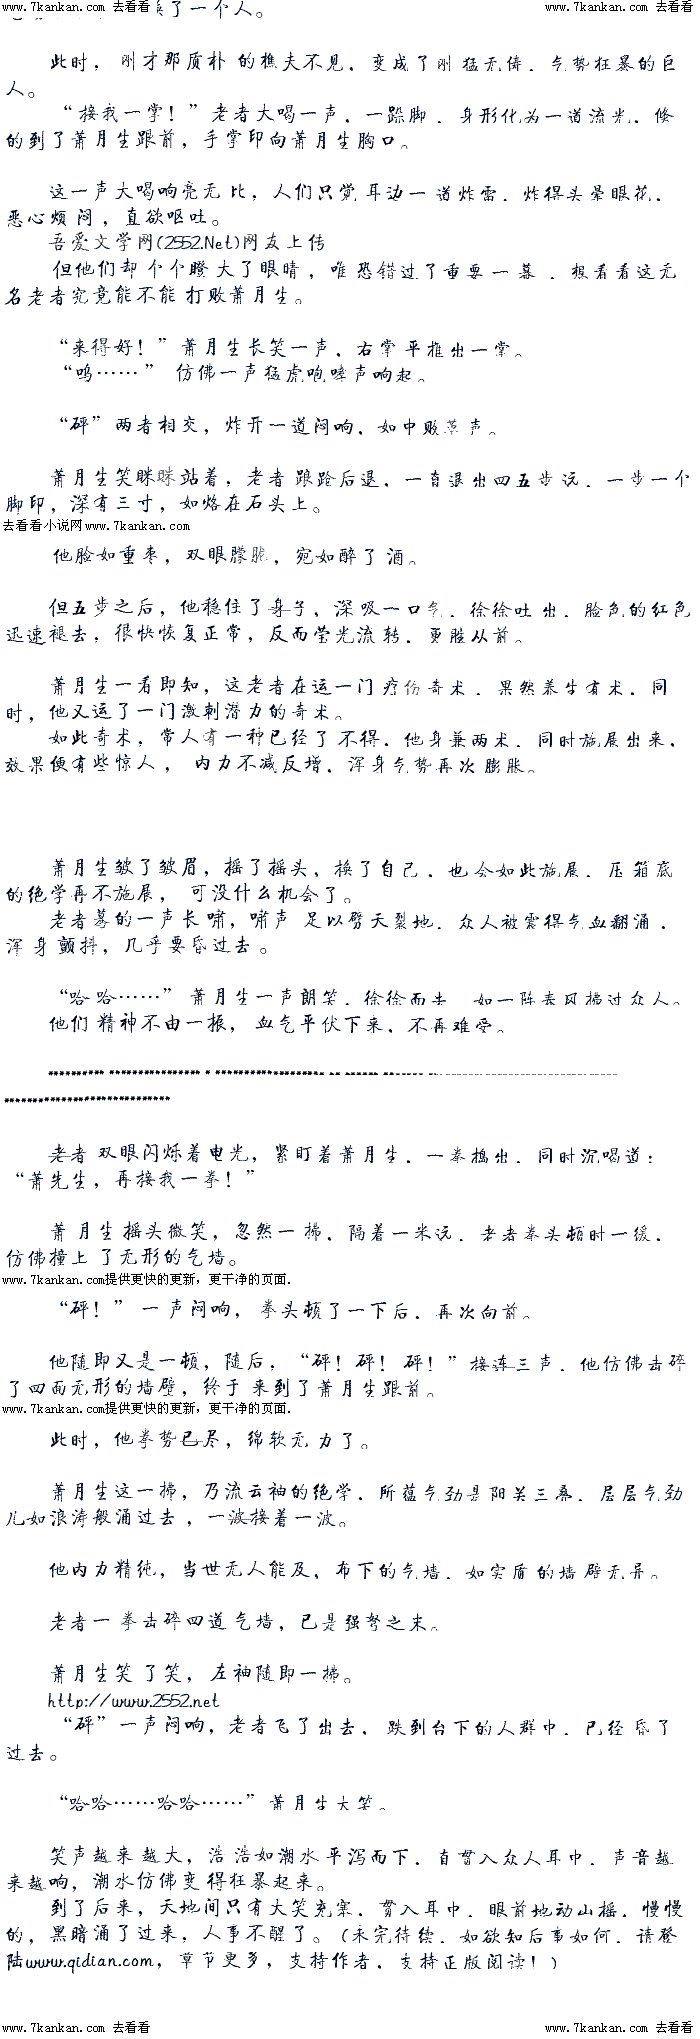 www.7kankan.com 去看看 www.7kankan.com 去看看
换了一个人。
此时，刚才那质朴的樵夫不见，变成了刚猛无俦，气势狂暴的巨
人。
“接我一掌！”老者大喝一声，一跺脚，身形化为一道流光，倏
的到了萧月生跟前，手掌印向萧月生胸口。
这一声大喝响亮无比，人们只觉耳边一道炸雷，炸得头晕眼花，
恶心烦闷，直欲呕吐。
吾爱文学网(2552.Net)网友上传
但他们却个个瞪大了眼睛，唯恐错过了重要一幕，想看看这无
名老者究竟能不能打败萧月生。
“来得好！”萧月生长笑一声，右掌平推出一掌。
“呜……” 仿佛一声猛虎咆哮声响起。
“砰”两者相交，炸开一道闷响，如中败革声。
萧月生笑眯眯站着，老者踉跄后退，一直退出四五步远，一步一个
脚印，深有三寸，如烙在石头上。
去看看小说网www.7kankan.com
他脸如重枣，双眼朦胧，宛如醉了酒。
但五步之后，他稳住了身子，深吸一口气，徐徐吐出，脸色的红色
迅速褪去，很快恢复正常，反而莹光流转，更胜从前。
萧月生一看即知，这老者在运一门疗伤奇术，果然养生有术，同
时，他又运了一门激刺潜力的奇术。
如此奇术，常人有一种已经了不得，他身兼两术，同时施展出来，
效果便有些惊人，内力不减反增，浑身气势再次膨胀。
萧月生皱了皱眉，摇了摇头，换了自己，也会如此施展，压箱底
的绝学再不施展，可没什么机会了。
老者蓦的一声长啸，啸声足以劈天裂地，众人被震得气血翻涌，
浑身颤抖，几乎要昏过去。
“哈哈……”萧月生一声朗笑，徐徐而去，如一阵春风拂过众人。
他们精神不由一振，血气平伏下来，不再难受。
老者双眼闪烁着电光，紧盯着萧月生，一拳捣出，同时沉喝道：
“萧先生，再接我一拳！”
萧月生摇头微笑，忽然一拂，隔着一米远，老者拳头顿时一缓，
仿佛撞上了无形的气墙。
www.7kankan.com提供更快的更新，更干净的页面.
“砰！”一声闷响，拳头顿了一下后，再次向前。
他随即又是一顿，随后，“砰！砰！砰！”接连三声，他仿佛击碎
了四面无形的墙壁，终于来到了萧月生跟前。
www.7kankan.com提供更快的更新，更干净的页面.
此时，他拳势已尽，绵软无力了。
萧月生这一拂，乃流云袖的绝学，所蕴气劲是阳关三叠，层层气劲
儿如浪涛般涌过去，一波接着一波。
他内力精纯，当世无人能及，布下的气墙，如实质的墙壁无异。
老者一拳击碎四道气墙，已是强弩之末。
萧月生笑了笑，左袖随即一拂。
http://www.2552.net
“砰”一声闷响，老者飞了出去，跌到台下的人群中，已经昏了
过去。
“哈哈……哈哈……”萧月生大笑。
笑声越来越大，浩浩如潮水平泻而下，自贯入众人耳中，声音越
来越响，潮水仿佛变得狂暴起来。
到了后来，天地间只有大笑充塞，贯入耳中，眼前地动山摇，慢慢
的，黑暗涌了过来，人事不醒了。(未完待续，如欲知后事如何，请登
陆www.qidian.com，章节更多，支持作者，支持正版阅读！)
www.7kankan.com 去看看 www.7kankan.com 去看看